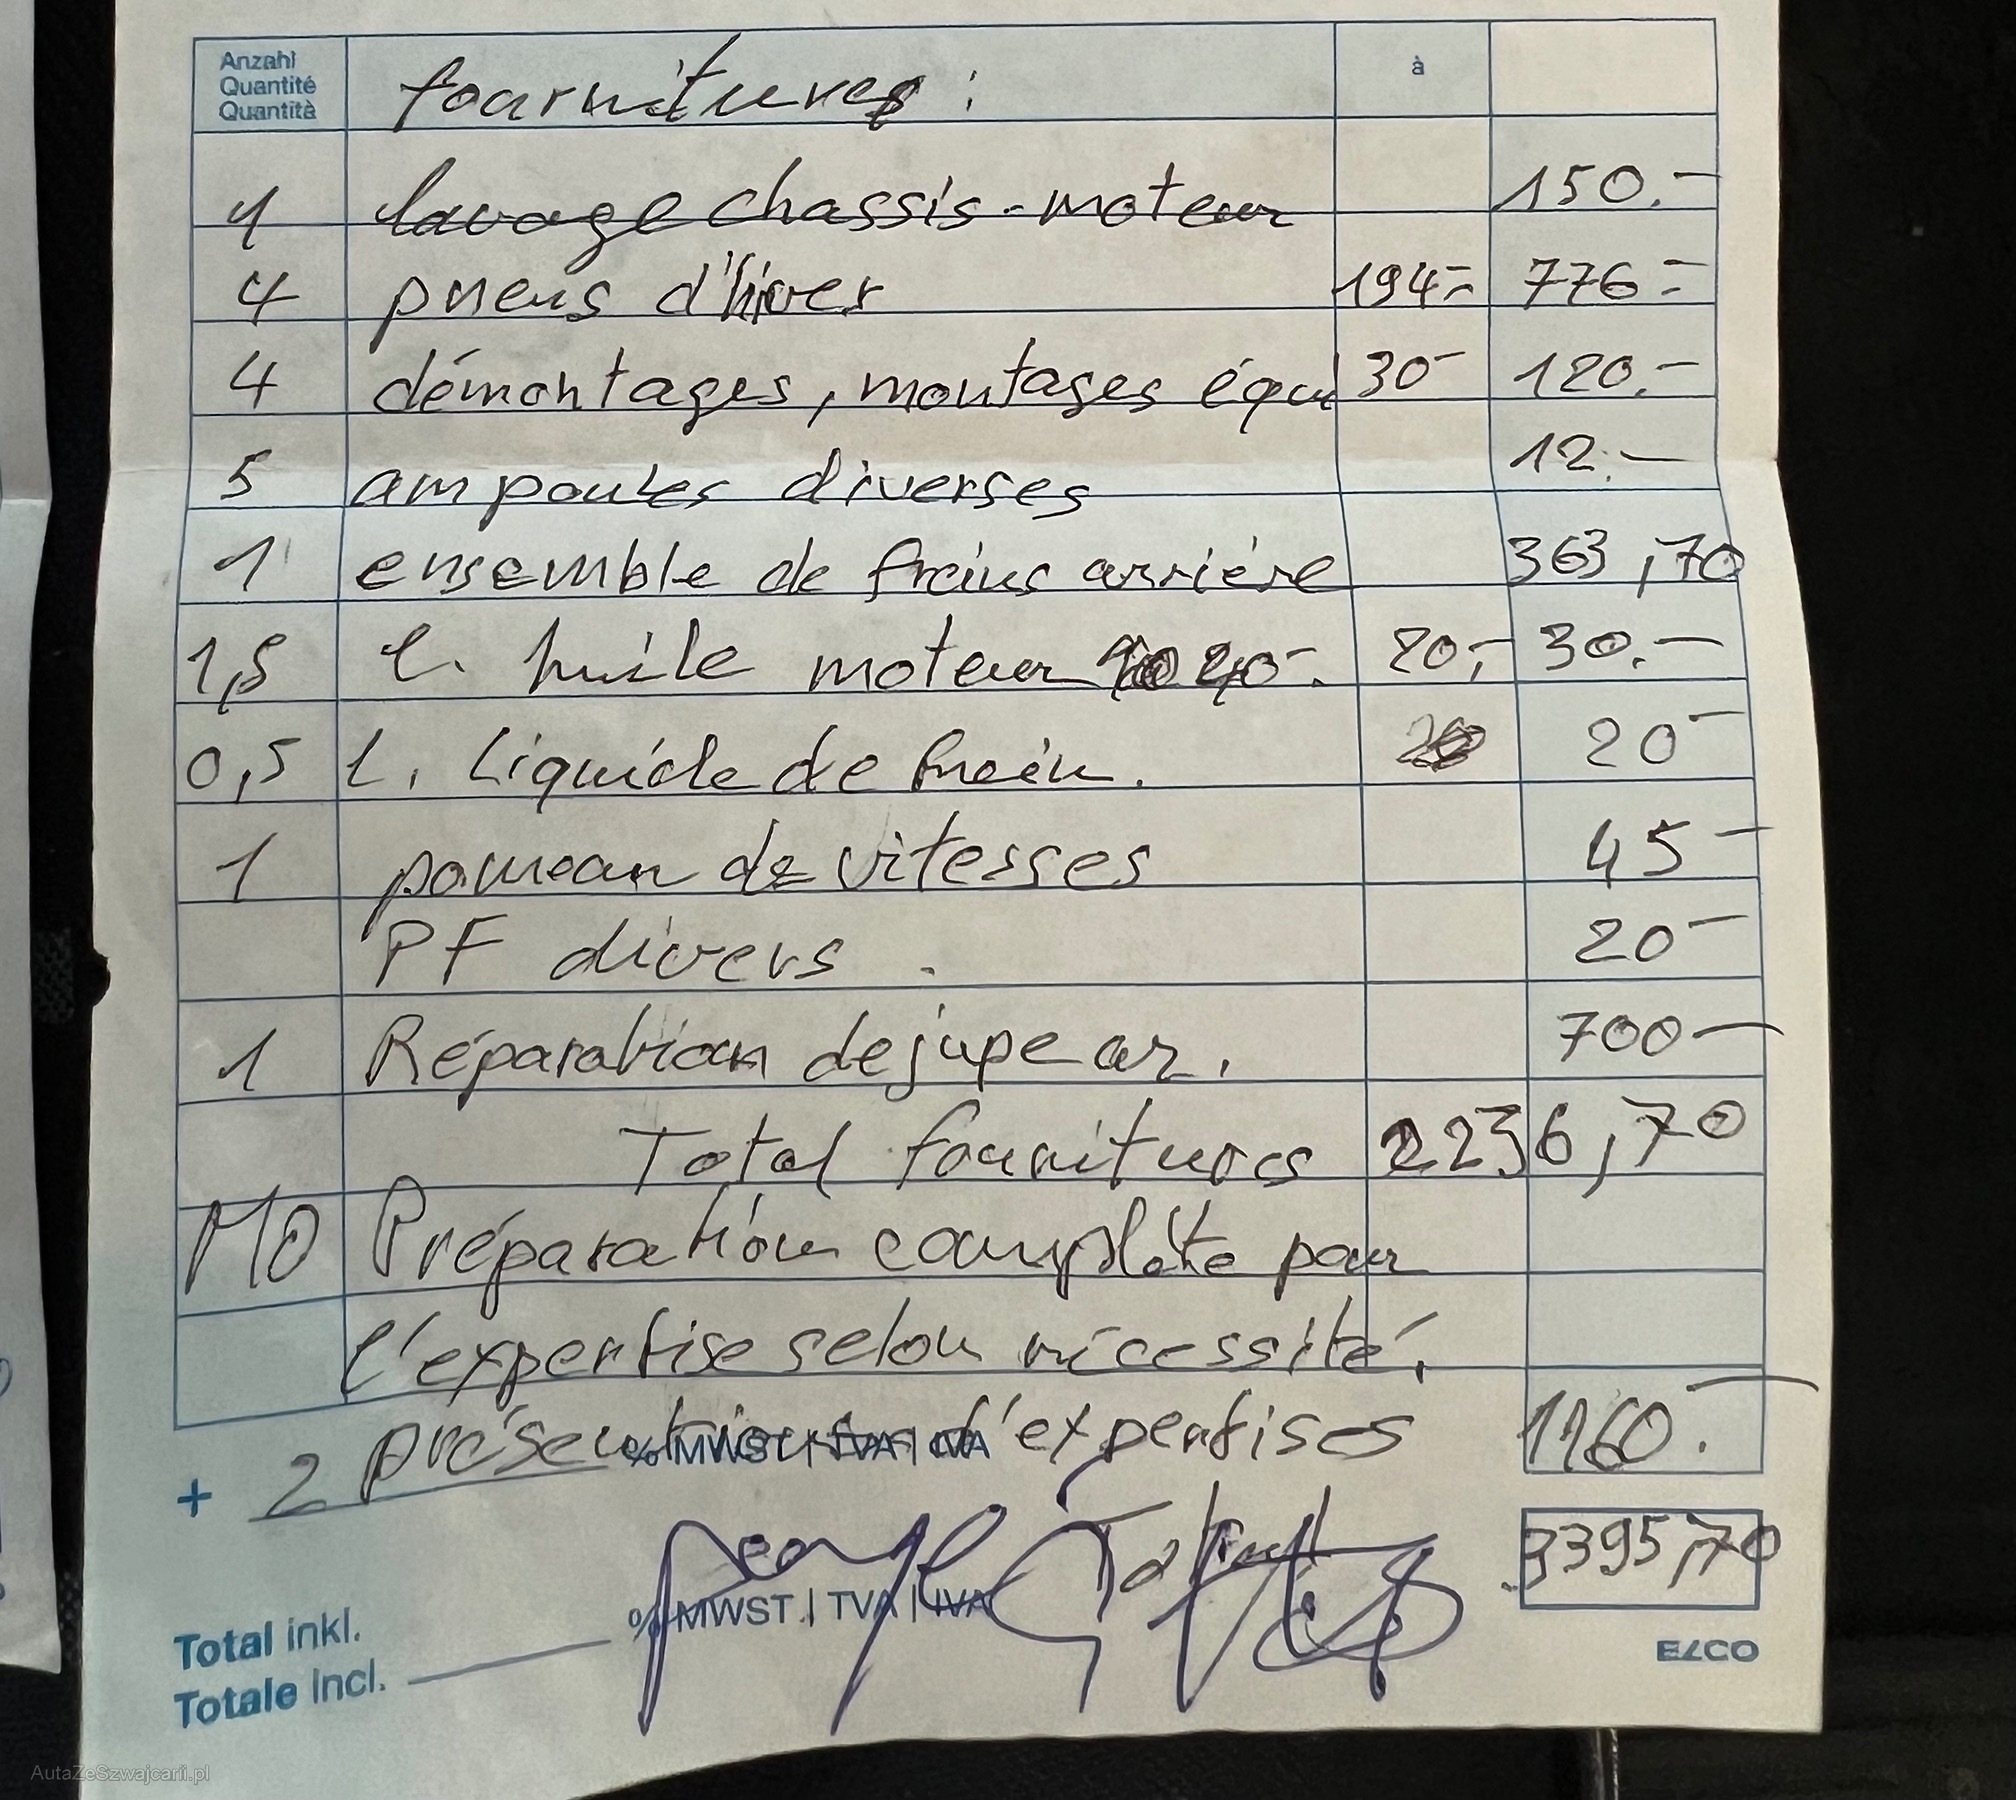 Anzahl
Quantité
Quantità
fournitures :
à
1 lavage chassis-moteur 150.-
4 pneus d'hiver 194.- 776.-
4 démontages, montages équi 30- 120.-
5 ampoules diverses 12.-
1 ensemble de freins arrière 363,70
1,5 l. huile moteur 20.- 30.-
0,5 l. liquide de frein. 20-
1 pomeau de vitesses 45-
PF divers. 20-
1 Réparation de jupe ar. 700-
Total fournitures 2236,70
MO Préparation complète pour
l'expertise selon nécessité.
+ 2 présentations d'expertises 1160.-
% MWST | TVA | IVA
Total 3395,70
% MWST | TVA | IVA
Total inkl.
Totale incl.
ELCO
AutaZeSzwajcarii.pl